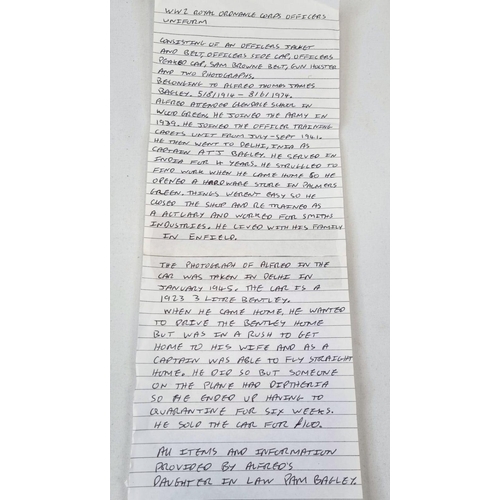 WW2 ROYAL ORDNANCE CORPS OFFICERS
UNIFORM
CONSISTING OF AN OFFICERS JACKET
AND BELT, OFFICERS SIDE CAP, OFFICERS
PEAKED CAP, SAM BROWNE BELT, GUN HOLSTER
AND TWO PHOTOGRAPHS.
BELONGING TO ALFRED THOMAS JAMES
BAGLEY. 5/8/1914 - 8/6/1974.
ALFRED ATTENDED GLENDALE SCHOOL IN
WOOD GREEN. HE JOINED THE ARMY IN
1939. HE JOINED THE OFFICER TRAINING
CADETS UNIT FROM JULY - SEPT 1941.
HE THEN WENT TO DELHI, INIA AS
CAPTAIN AT J BAGLEY. HE SERVED IN
INDIA FOR 4 YEARS. HE STRUGGLED TO
FIND WORK WHEN HE CAME HOME SO HE
OPENED A HARDWARE STORE IN PALMERS
GREEN. THINGS WERENT EASY SO HE
CLOSED THE SHOP AND RE TRAINED AS
A ACTUARY AND WORKED FOR SMITHS
INDUSTRIES. HE LIVED WITH HIS FAMILY
IN ENFIELD.
THE PHOTOGRAPH OF ALFRED IN THE
CAR WAS TAKEN IN DELHI IN
JANUARY 1945. THE CAR IS A
1923 3 LITRE BENTLEY.
WHEN HE CAME HOME. HE WANTED
TO DRIVE THE BENTLEY HOME
BUT WAS IN A RUSH TO GET
HOME TO HIS WIFE AND AS A
CAPTAIN WAS ABLE TO FLY STRAIGHT
HOME. HE DID SO BUT SOMEONE
ON THE PLANE HAD DIPTHERIA
SO HE ENDED UP HAVING TO
QUARANTINE FOR SIX WEEKS.
HE SOLD THE CAR FOR £100.
ALL ITEMS AND INFORMATION
PROVIDED BY ALFRED'S
DAUGHTER IN LAW PAM BAGLEY.